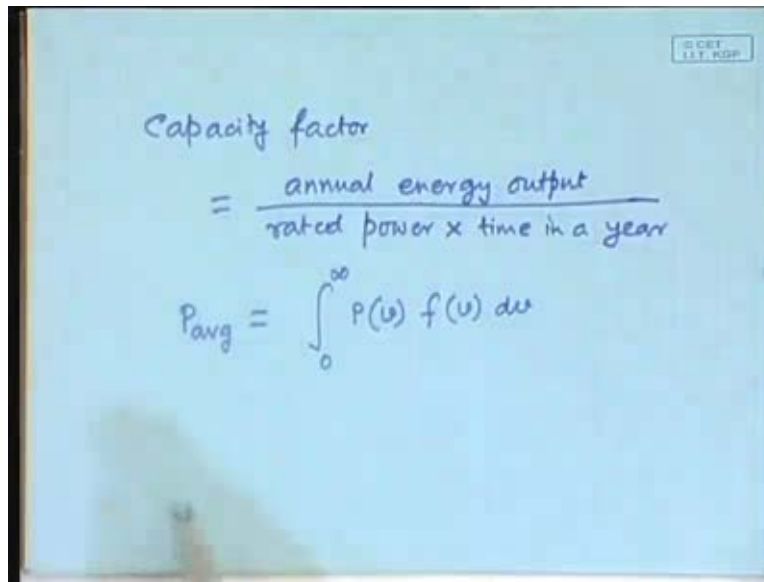 © CET
I.I.T. KGP
Capacity factor
= annual energy output / rated power × time in a year
P_avg = ∫_0^∞ P(v) f(v) dv